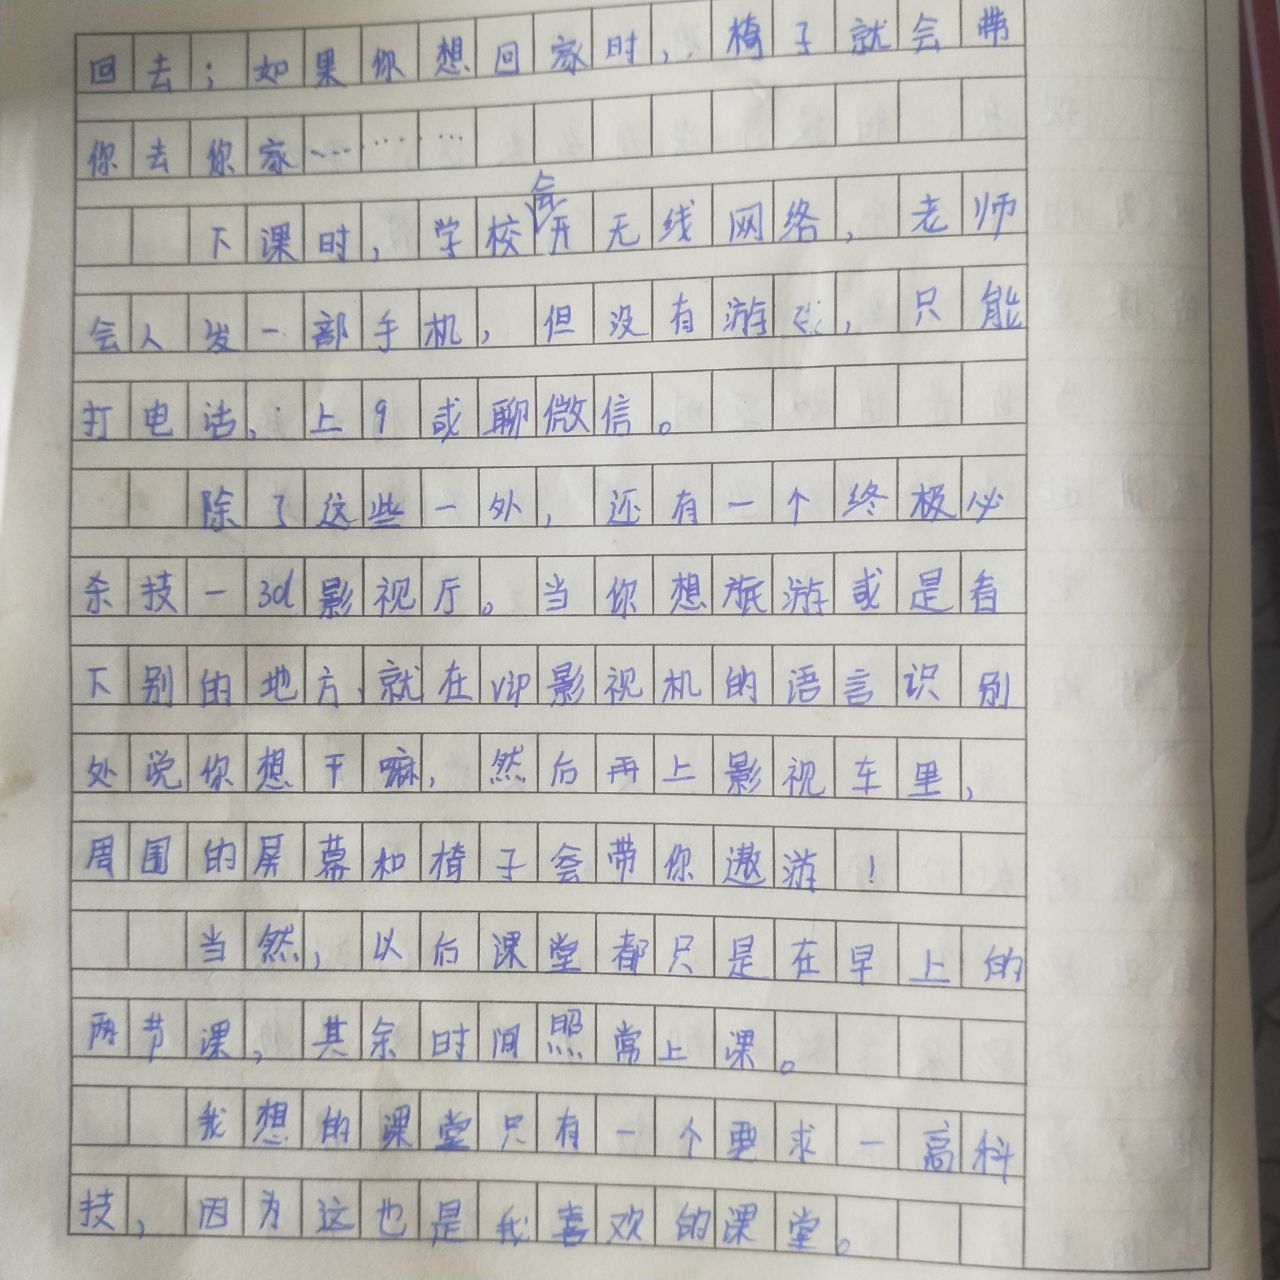 回去；如果你想回家时，椅子就会带
你去你家………
下课时，学校会开无线网络，老师
会人发一部手机，但没有游戏，只能
打电话、上q或聊微信。
除了这些一外，还有一个终极必
杀技一3d影视厅。当你想旅游或是看
下别的地方，就在vip影视机的语言识别
处说你想干嘛，然后再上影视车里，
周围的屏幕和椅子会带你遨游！
当然，以后课堂都只是在早上的
两节课，其余时间照常上课。
我想的课堂只有一个要求一高科
技，因为这也是我喜欢的课堂。